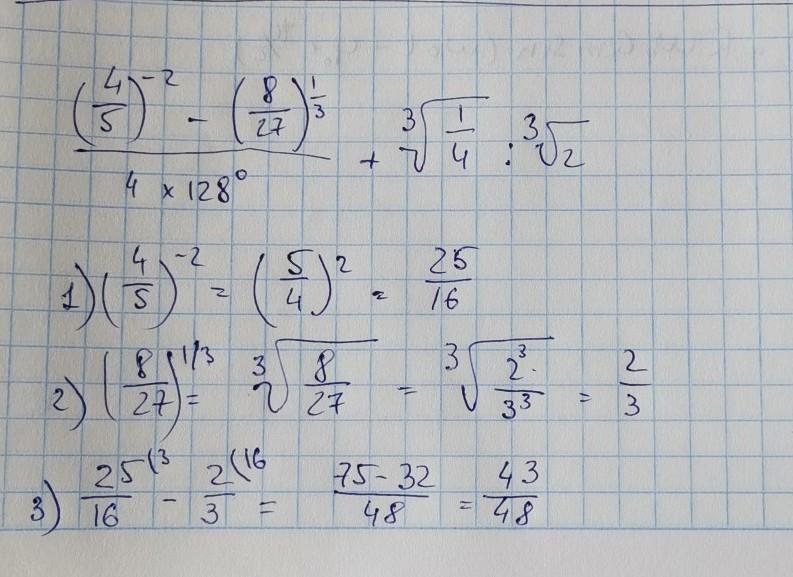 (4/5)^-2 - (8/27)^1/3
4 × 128° + ∛(1/4) : ∛2
1) (4/5)^-2 = (5/4)^2 = 25/16
2) (8/27)^1/3 = ∛(8/27) = ∛(2^3/3^3) = 2/3
3) 25(3/16 - 2(16/3 = 75-32/48 = 43/48